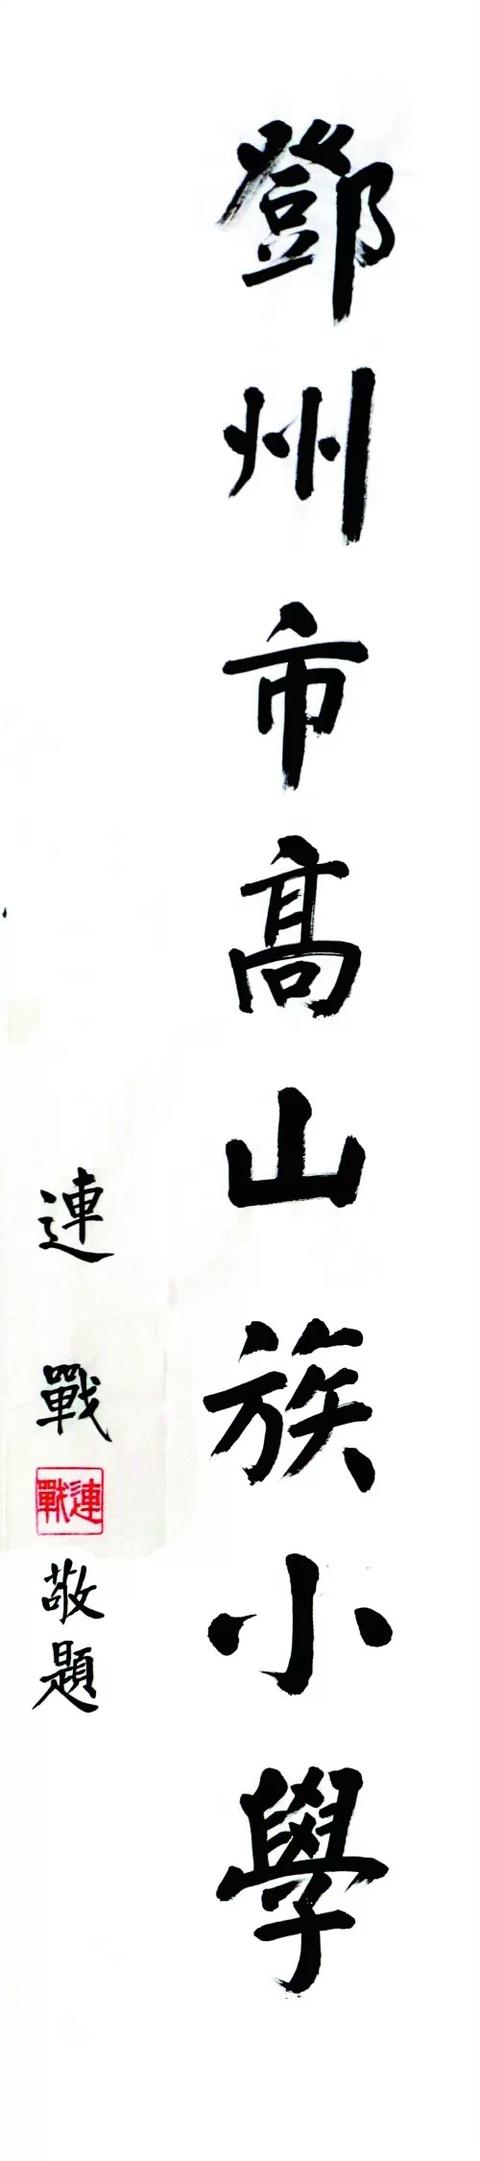 鄧州市髙山族小學
連戰
連戰
敬題